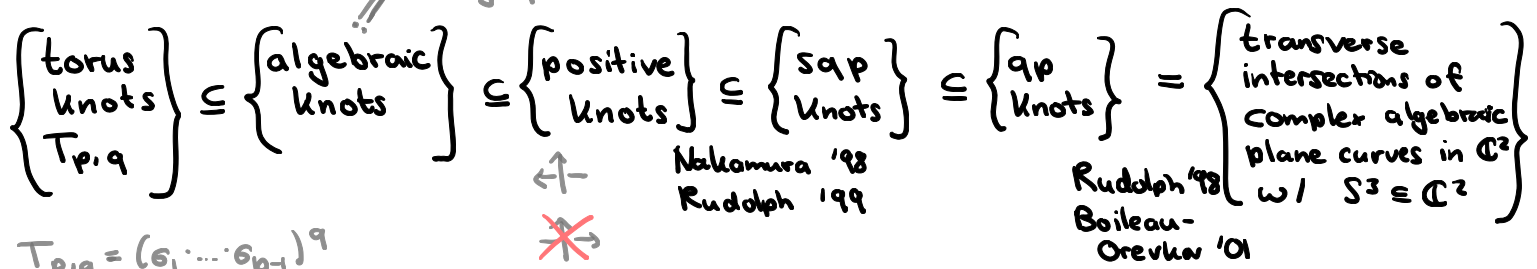 {torus knots T_{p,q}} ⊆ {algebraic knots} ⊆ {positive knots} ⊆ {sqp knots} ⊆ {qp knots} = {transverse intersections of complex algebraic plane curves in ℂ² w/ S³ ⊆ ℂ²}
Nakamura '98
Rudolph '99
Rudolph '98
Boileau-
Orevkov '01
T_{p,q} = (σ_1 · ... · σ_{p-1})^q